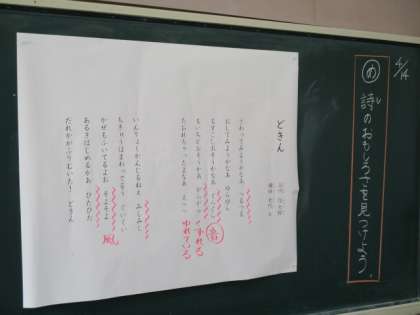 4/14
め 詩のおもしろさを見つけよう。
どきん
谷川 俊太郎
さわってみようかなあ つるつる
おしてみようかなあ ゆらゆら
もすこしおそうかなあ ぐらぐら
もいちどおそうかあ がらがら
たおれちゃったよなあ えへへ
ゆれている
いんりょくかんじるねえ みしみし
ちきゅうはまわってるう ぐいぐい
かぜもふいてるよお そよそよ
風
あるきはじめるかあ ひたひた
だれかがふりむいた! どきん